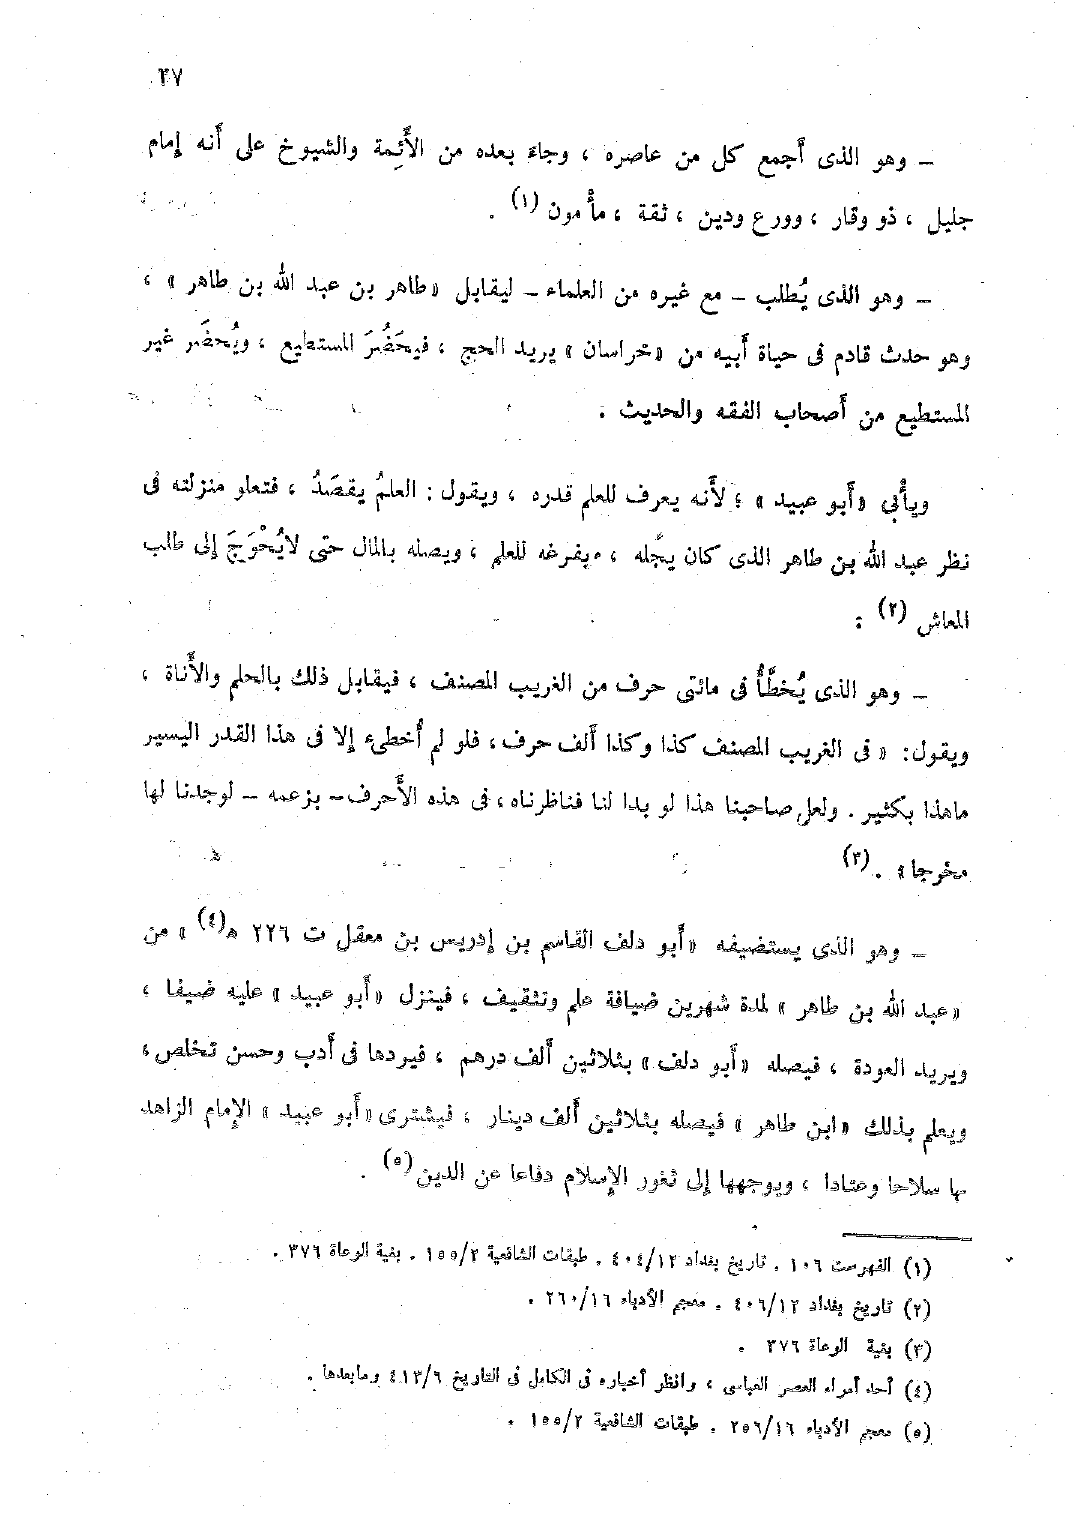 ٢٧
– وهو الذى أجمع كل من عاصره ، وجاء بعده من الأَئِمة والشيوخ على أنه إمام
جليل ، ذو وقار ، وورع ودين ، ثقة ، مأمون (١) .
– وهو الذى يُطلب – مع غيره من العلماء – ليقابل «طاهر بن عبد الله بن طاهر» ،
وهو حدث قادم فى حياة أبيه من «خراسان» يريد الحج ، فيحَضُرَ المستطيع ، ويُحضَر غير
المستطيع من أصحاب الفقه والحديث .
ويأْبى «أبو عبيد» ؛ لأَنه يعرف للعلم قدره ، ويقول : العلمُ يقصَدُ ، فتعلو منزلته فى
نظر عبد الله بن طاهر الذى كان يجّله ، ويفرغه للعلم ، ويصله بالمال حتى لايُحْوَجَ إلى طلب
المعاش (٢) :
– وهو الذى يُخطَّأُ فى مائتى حرف من الغريب المصنف ، فيقابل ذلك بالحلم والأَناة ،
ويقول: « فى الغريب المصنف كذا وكذا ألف حرف، فلو لم أُخطىء إلا فى هذا القدر اليسير
ماهذا بكثير . ولعل صاحبنا هذا لو بدا لنا فناظرناه، فى هذه الأَحرف– بزعمه – لوجدنا لها
مخرجا» . (٣)
– وهو الذى يستضيفه «أبو دلف القاسم بن إدريس بن معقل ت ٢٢٦ ه(٤) » من
«عبد الله بن طاهر» لمدة شهرين ضيافة علم وتثقيف ، فينزل «أبو عبيد» عليه ضيفا ،
ويريد العودة ، فيصله «أبو دلف» بثلاثين ألف درهم ، فيردها فى أدب وحسن تخلص،
ويعلم بذلك «ابن طاهر» فيصله بثلاثين ألف دينار ، فيشترى «أبو عبيد» الإمام الزاهد
بها سلاحا وعتادا ، ويوجهها إلى ثغور الإسلام دفاعا عن الدين(٥) .
(١) الفهرست ١٠٦ . تاريخ بغداد ٤٠٤/١٢ . طبقات الشافعية ١٥٥/٢ . بغية الوعاة ٣٧٦ .
(٢) تاريخ بغداد ٤٠٦/١٢ . معجم الأدباء ٢٦٠/١٦ .
(٣) بغية الوعاة ٣٧٦ .
(٤) أحد أمراء العصر العباسى ، وانظر أخباره فى الكامل فى التاريخ ٤١٣/٦ ومابعدها .
(٥) معجم الأدباء ٢٥٦/١٦ . طبقات الشافعية ١٥٥/٢ .